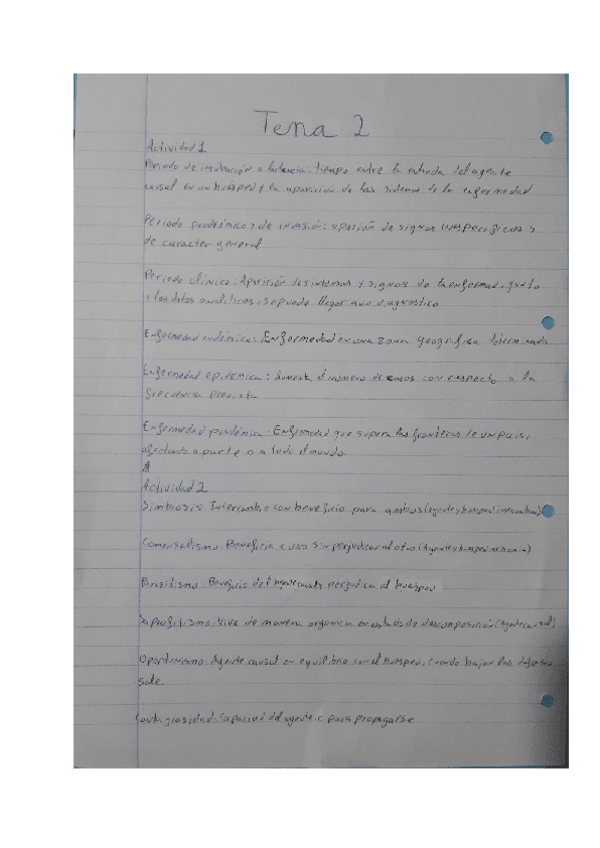 Tema 2
Actividad 1
Periodo de incubación o latencia: tiempo entre la entrada del agente
causal en un huésped y la aparición de los sintomas de la enfermedad
Periodo prodrómico y de invasión: aparión de signos inespecificos y
de caracter general
Periodo clínico: Aparición de sintomas y signos de la enfermedad, junto
a los datos analíticos, se puede llegar a un diagnostico
Enfermedad endémica: Enfermedad en una zona geografica determinada
Enfermedad epidémica: Aumenta el numero de casos con respecto a la
frecuencia prevista
Enfermedad pandémica: Enfermedad que supera las fronteras de un pais,
afectando a parte o a todo el mundo
Actividad 2
Simbiosis: Intercambio con beneficio para ambos (agente y huesped
Comensalismo: Beneficia a uno sin perjudicar al otro (Agente y huesped
Parasitismo: Beneficio del agente causal y perjudica al huesped
Saprofitismo: Vive de manera organica en estado de descomposición (Agente causal)
Oportunismo: Agente causal en equilibrio con el huesped, cuando bajan las defensas
sale.
Contagiosidad: Capacidad del agente c para propagarse